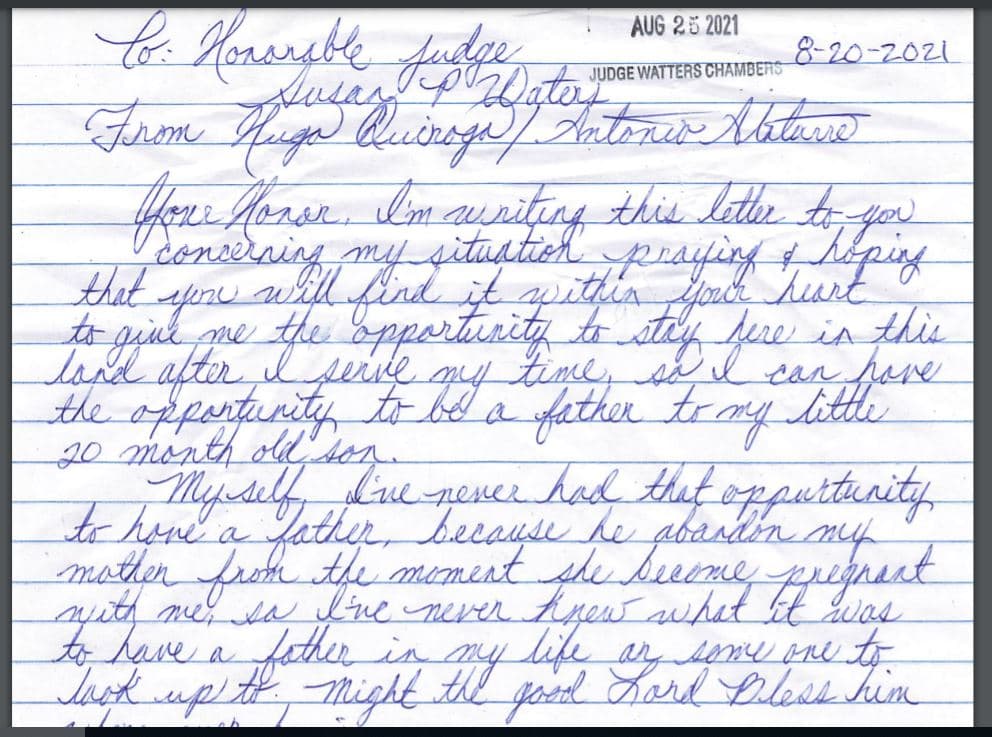 AUG 25 2021
To: Honorable judge 8-20-2021
JUDGE WATTERS CHAMBERS
Susan P Waters
From Hugo Quiroga / Antonio
Your Honor, I'm writing this letter to you
concerning my situation praying & hoping
that you will find it within your heart
to give me the opportunity to stay here in this
land after I serve my time, so I can have
the opportunity to be a father to my little
20 month old son.
My self, I've never had that oppurtunity
to have a father, because he abandon my
mother from the moment she become pregnant
with me, so I've never knew what it was
to have a father in my life or some one to
look up to. Might the good Lord Bless him